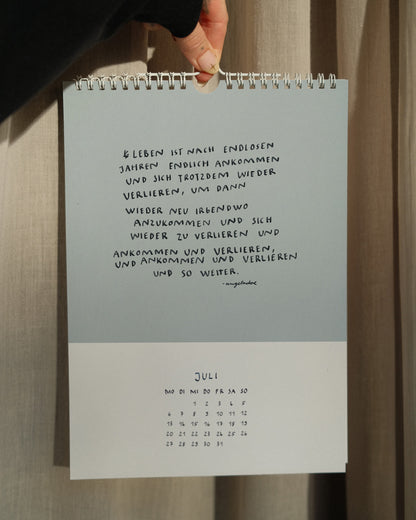 & LEBEN IST NACH ENDLOSEN
JAHREN ENDLICH ANKOMMEN
UND SICH TROTZDEM WIEDER
VERLIEREN, UM DANN
WIEDER NEU IRGENDWO
ANZUKOMMEN UND SICH
WIEDER ZU VERLIEREN UND
ANKOMMEN UND VERLIEREN,
UND ANKOMMEN UND VERLIEREN
UND SO WEITER.
JULI
MO DI MI DO FR SA SO
1 2 3 4 5
6 7 8 9 10 11 12
13 14 15 16 17 18 19
20 21 22 23 24 25 26
27 28 29 30 31